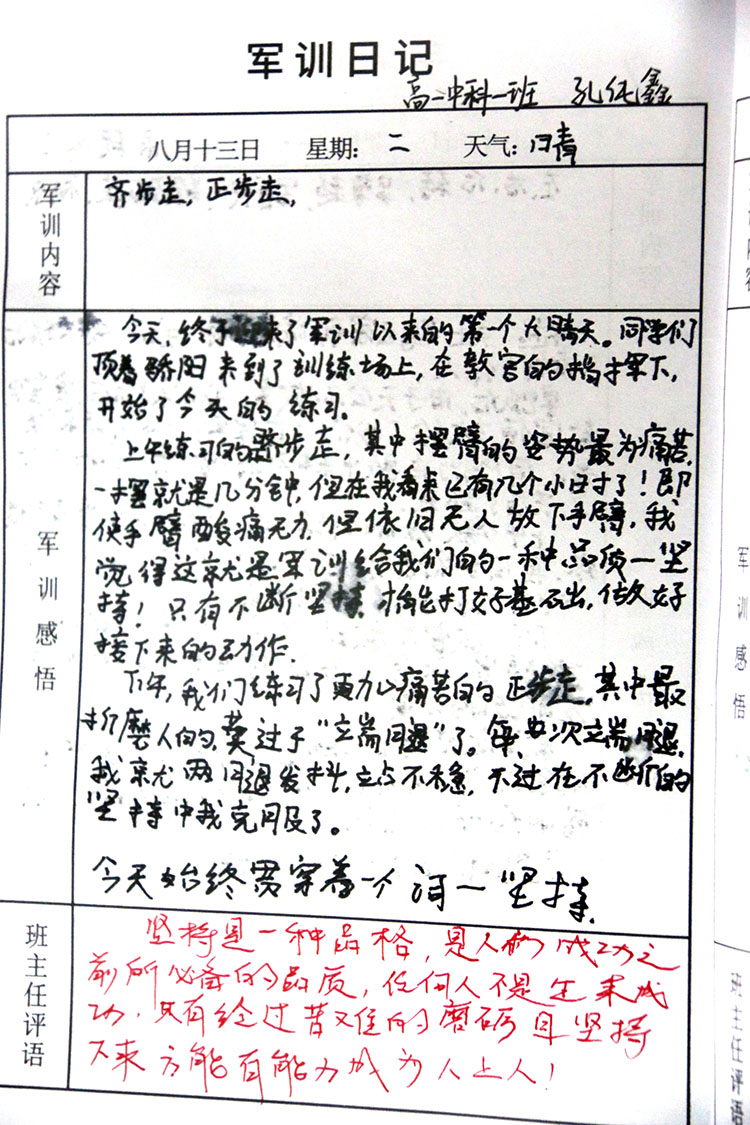 军训日记
高一中科一班 孔 鑫
八月十三日 星期：二 天气：晴
军训内容
齐步走，正步走，
军训感悟
今天，终于迎来了军训以来的第一个大晴天。同学们
顶着骄阳来到了训练场上，在教官的指挥下，
开始了今天的练习。
上午练习的齐步走，其中摆臂的姿势最为痛苦，
一摆就是几分钟，但在我看来已有几个小时了！即
使手臂酸痛无力，但依旧无人放下手臂，我
觉得这就是军训给我们的一种品质—坚
持！只有不断坚持，才能打好基础，做好
接下来的动作。
下午，我们练习了更加痛苦的正步走。其中最
折磨人的，莫过于“立端腿”了。每次立端腿，
我就两腿发抖，站不稳，不过在不断的
坚持中我克服了。
今天始终贯穿着一个词—坚持。
班主任评语
坚持是一种品格，是人们成功之
前所必备的品质，任何人不是生来成
功，只有经过苦难的磨砺且坚持
下来方能有能力成为人上人！
军训感悟
班主任评语